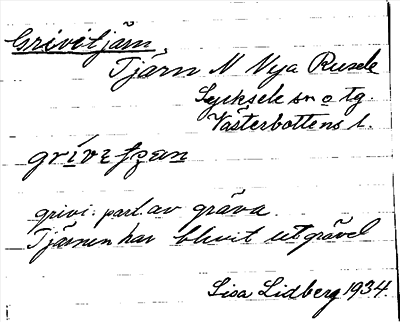 Grivitjärn,
Tjärn N Nya Rusele
Lycksele sn o tg
Västerbottens l.
grívetʃæn
grivi: part. av gräva.
Tjärnen har blivit utgrävd
Lisa Lidberg 1934.